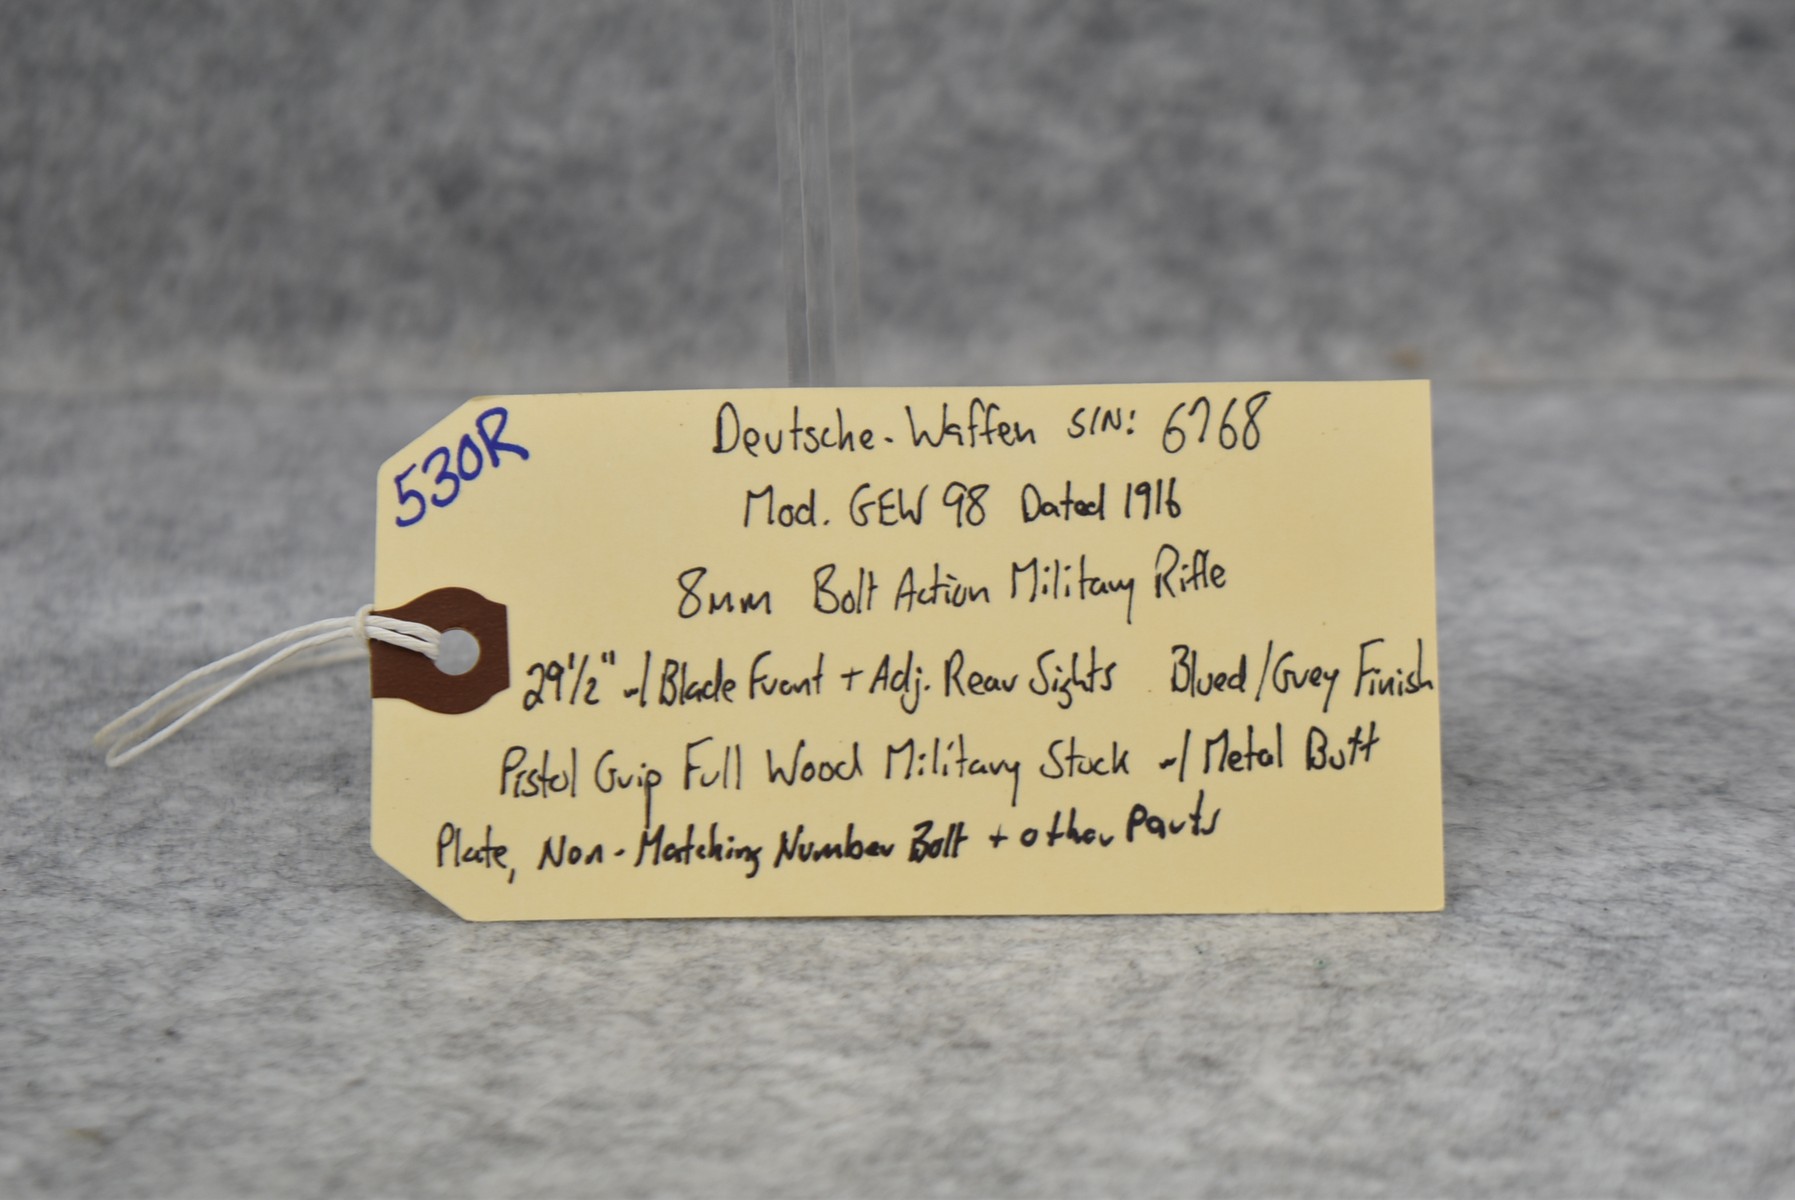 530R
Deutsche-Waffen S/N: 6768
Mod. GEW 98 Dated 1916
8mm Bolt Action Military Rifle
29 1/2" w/ Blade Front + Adj. Rear Sights Blued/Grey Finish
Pistol Grip Full Wood Military Stock w/ Metal Butt
Plate, Non-Matching Number Bolt + other Parts